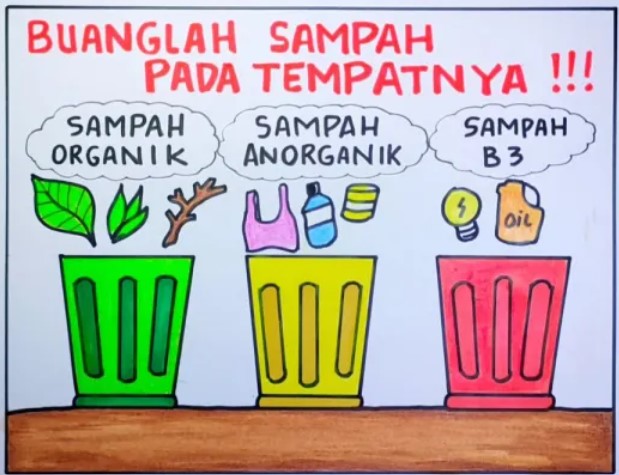 BUANGLAH SAMPAH
PADA TEMPATNYA !!!
SAMPAH
ORGANIK
SAMPAH
ANORGANIK
SAMPAH
B3
OIL